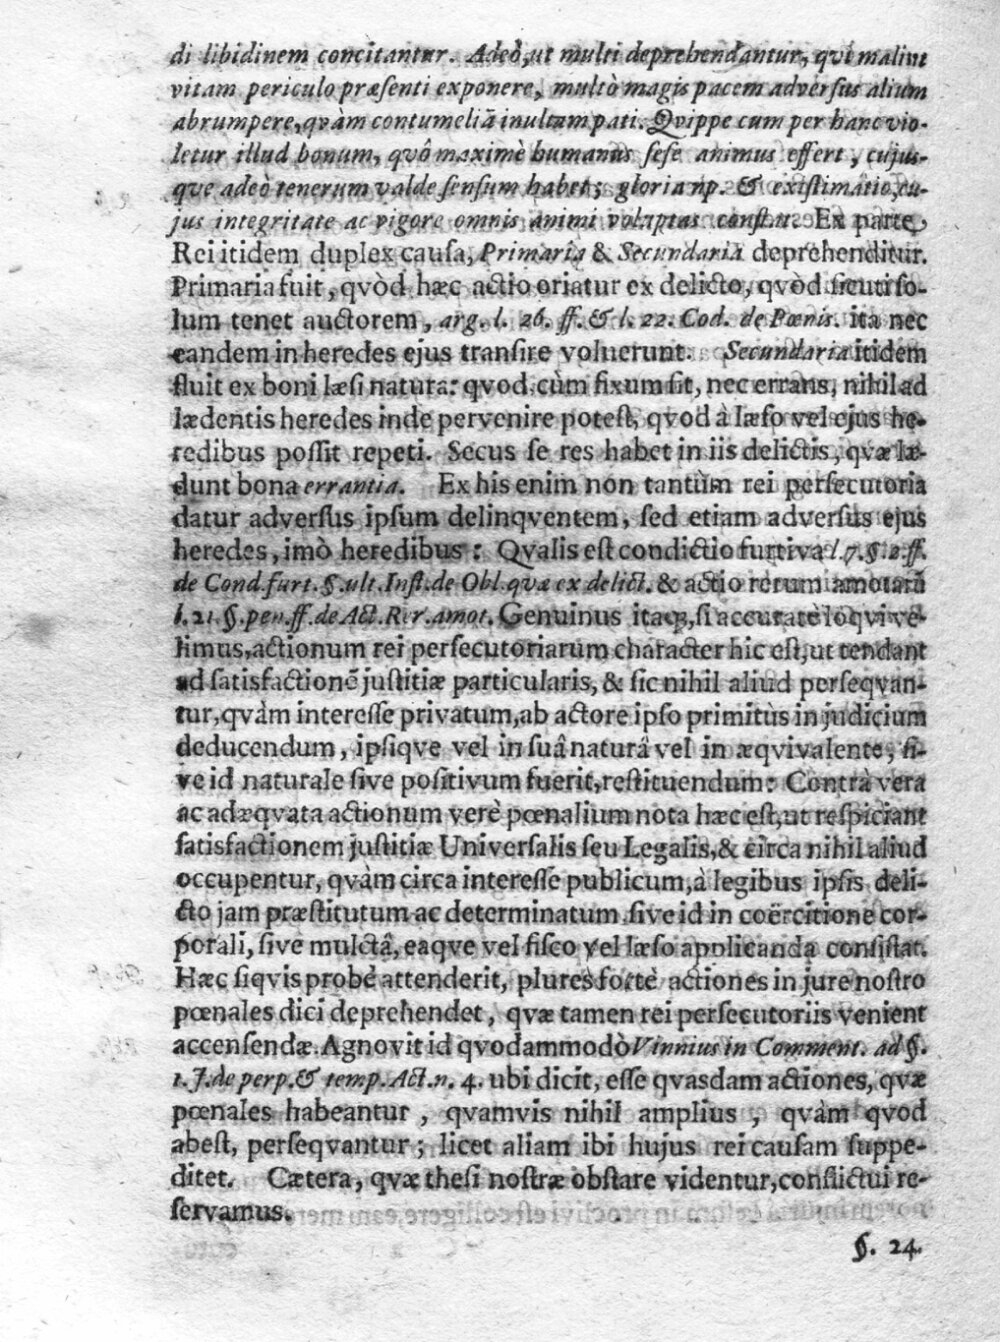 di libidinem concitantur. Adeò, ut multi deprehendantur, qvi malint
vitam periculo præsenti exponere, multò magis pacem adversus alium
abrumpere, qvàm contumeliã inultam pati. Qvippe cum per hanc vio-
letur illud bonum, qvô maximè humanus sese animus effert, cujus-
que adeò tenerum valde sensum habet; gloria np. & existimatio, cu-
jus integritate ac vigore omnis animi voluptas constat. Ex parte
Rei itidem duplex causa, Primaria & Secundaria deprehenditur.
Primaria fuit, qvòd hæc actio oriatur ex delicto, qvòd sicuti so-
lum tenet auctorem, arg. l. 26. ff. & l. 22. Cod. de Pœnis. ita nec
eandem in heredes ejus transire voluerunt. Secundaria itidem
fluit ex boni læsi natura: qvod, cùm fixum sit, nec errans, nihil ad
lædentis heredes inde pervenire potest, qvod à læso vel ejus he-
redibus possit repeti. Secus se res habet in iis delictis, qvæ læ-
dunt bona errantia. Ex his enim non tantùm rei persecutoria
datur adversus ipsum delinqventem, sed etiam adversus ejus
heredes, imò heredibus: Qvalis est condictio furtiva l. 7. §. 2. ff.
de Cond. furt. §. ult. Inst. de Obl. quæ ex delict. & actio rerum amotarũ
l. 21. §. pen. ff. de Act. Rer. amot. Genuinus itaq;, si accuratè loqvi ve-
limus, actionum rei persecutoriarum character hic est, ut tendant
ad satisfactionẽ justitiæ particularis, & sic nihil aliud perseqvan-
tur, qvàm interesse privatum, ab actore ipso primitùs in judicium
deducendum, ipsiqve vel in suâ naturâ vel in æqvivalente, si-
ve id naturale sive positivum fuerit, restituendum: Contrà vera
ac adæqvata actionum verè pœnalium nota hæc est, ut respiciant
satisfactionem justitiæ Universalis seu Legalis, & circa nihil aliud
occupentur, qvàm circa interesse publicum, à legibus ipsis deli-
cto jam præstitutum ac determinatum, sive id in coërcitione cor-
porali, sive mulctâ, eaqve vel fisco vel læso applicanda consistat.
Hæc siqvis probè attenderit, plures fortè actiones in jure nostro
pœnales dici deprehendet, qvæ tamen rei persecutoriis venient
accensendæ. Agnovit id qvodammodò Vinnius in Comment. ad §.
1. J. de perp. & temp. Act. n. 4. ubi dicit, esse qvasdam actiones, qvæ
pœnales habeantur, qvamvis nihil amplius, qvàm qvod
abest, perseqvantur; licet aliam ibi hujus rei causam suppe-
ditet. Cætera, qvæ thesi nostræ obstare videntur, conflictui re-
servamus.
§. 24.